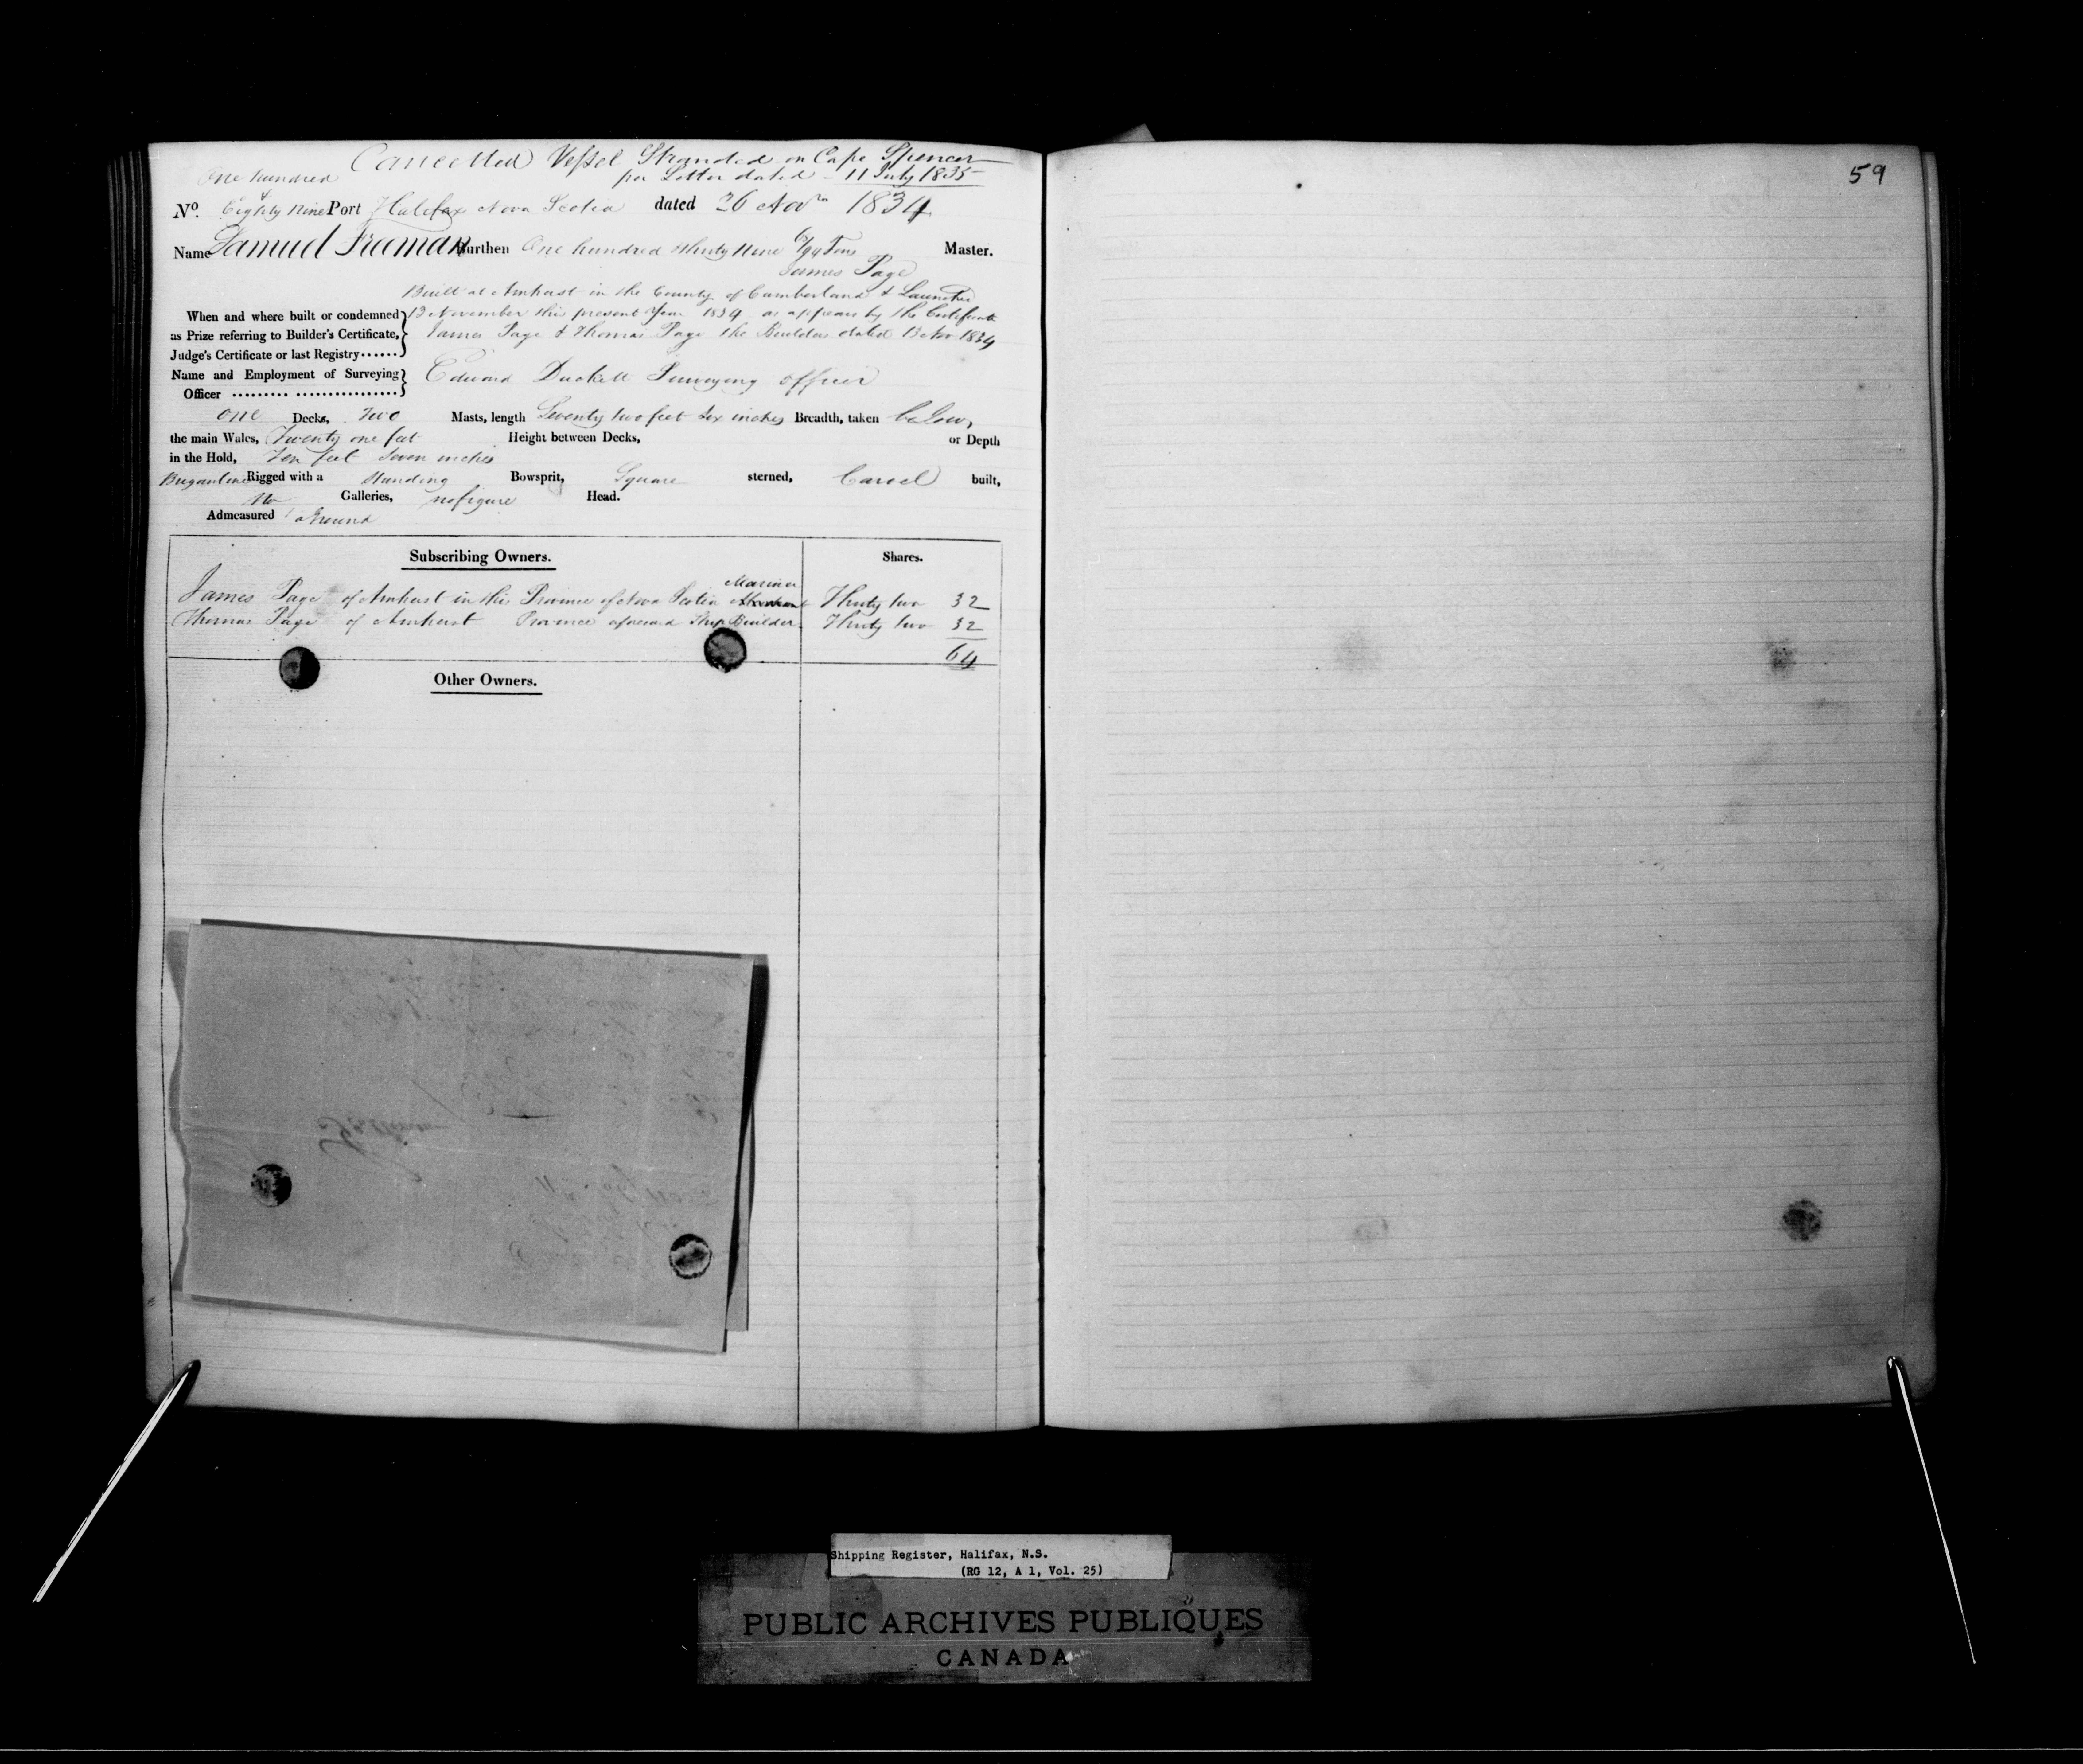 Cancelled Vessel Stranded on Cape Spencer
per Letter dated - 11 July 1835
One hundred
&
No. Eighty Nine Port Halifax Nova Scotia dated 26 Novr 1834
Name Samuel Freeman Burthen One hundred thirty Nine 6/94 Tons Master.
James Page
Built at Amherst in the County of Cumberland & Launched
When and where built or condemned 13 November this present Year 1834 as appears by the Certificate
as Prize referring to Builder's Certificate, James Page & Thomas Page the Builders dated 13 Nov 1834
Judge's Certificate or last Registry
Name and Employment of Surveying Edward Duckett Surveying officer
Officer
One Decks, Two Masts, length Seventy two feet Six inches Breadth, taken below
the main Wales, Twenty one feet Height between Decks, or Depth
in the Hold, Ten feet Seven inches
Brigantine Rigged with a Standing Bowsprit, Square sterned, Carvel built,
No Galleries, no figure Head.
Admeasured aground
Subscribing Owners. Shares.
Mariner
James Page of Amherst in the Province of Nova Scotia Thirty two 32
Thomas Page of Amherst Province aforesaid Ship Builder Thirty two 32
64
Other Owners.
59
Shipping Register, Halifax, N.S.
(RG 12, A 1, Vol. 25)
PUBLIC ARCHIVES PUBLIQUES
CANADA